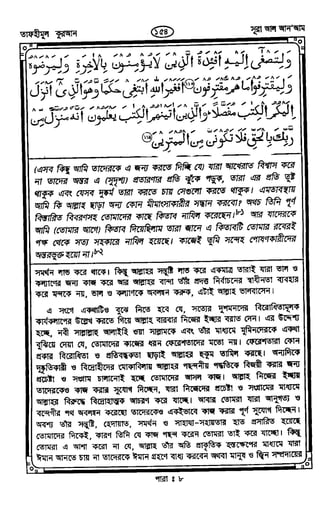 তাফহীমুল কুরআন
১৫৪
সূরা আল আন'আম
وَلِتَصْغَىٰ إِلَيْهِ أَفْئِدَةُ الَّذِينَ لَا يُؤْمِنُونَ بِالْآخِرَةِ وَلِيَرْضَوْهُ
وَلِيَقْتَرِفُوا مَا هُمْ مُقْتَرِفُونَ ۝ أَفَغَيْرَ اللَّهِ أَبْتَغِي حَكَمًا وَهُوَ الَّذِي أَنْزَلَ
إِلَيْكُمُ الْكِتٰبَ مُفَصَّلًا وَالَّذِينَ آتَيْنٰهُمُ الْكِتٰبَ يَعْلَمُونَ أَنَّهُ مُنَزَّلٌ مِنْ
رَبِّكَ بِالْحَقِّ فَلَا تَكُونَنَّ مِنَ الْمُمْتَرِينَ ۝
(এসব কিছু আমি তাদেরকে এ জন্য করতে দিচ্ছি যে) যারা আখেরাত বিশ্বাস করে
না তাদের অন্তর এ (সুদৃশ্য) প্রতারণার প্রতি ঝুঁকে পড়ুক, তারা এর প্রতি তুষ্ট
থাকুক এবং যেসব দুষ্কর্ম তারা করতে চায় সেগুলো করতে থাকুক। এমতাবস্থায়
আমি কি আল্লাহ ছাড়া অন্য কোন মীমাংসাকারীর সন্ধান করবো? অথচ তিনি পূর্ণ
বিস্তারিত বিবরণসহ তোমাদের কাছে কিতাব নাযিল করেছেন।৮১ আর যাদেরকে
আমি (তোমার আগে) কিতাব দিয়েছিলাম তারা জানে এ কিতাবটি তোমার রবেরই
পক্ষ থেকে সত্য সহকারে নাযিল হয়েছে। কাজেই তুমি সন্দেহ পোষণকারীদের
অন্তরভুক্ত হয়ো না।৮২
সমর্থন লাভ করে থাকে। কিন্তু আল্লাহর সন্তুষ্টি লাভ করে একমাত্র তারাই যারা ভাল ও
কল্যাণের জন্য কাজ করে আর আল্লাহর বান্দা তাঁর প্রদত্ত নির্বাচনের স্বাধীনতা ব্যবহার
করে মন্দকে নয়, ভাল ও কল্যাণকে অবলম্বন করুক, এটাই আল্লাহ ভালবাসেন।
এ সংগে একথাটিও বুঝে নিতে হবে যে, সত্যের দুশমনদের বিরোধিতামূলক
কার্যকলাপের উল্লেখ করতে গিয়ে আল্লাহ বারবার নিজের ইচ্ছার বরাত দেন। এর উদ্দেশ্য
হচ্ছে, নবী সাল্লাল্লাহু আলাইহি ওয়া সাল্লামকে এবং তাঁর মাধ্যমে মুমিনদেরকে একথা
বুঝিয়ে দেয়া যে, তোমাদের কাজের ধরন ফেরেশতাদের মতো নয়। ফেরেশতারা কোন
প্রকার বিরোধিতা ও প্রতিবন্ধকতা ছাড়াই আল্লাহর হুকুম তামিল করছে। অন্যদিকে
দুষ্কৃতিকারী ও বিদ্রোহীদের মোকাবিলায় আল্লাহর পছন্দনীয় পদ্ধতিকে বিজয়ী করার জন্য
প্রচেষ্টা ও সংগ্রাম চালানোই হচ্ছে তোমাদের আসল কাজ। আল্লাহ নিজের ইচ্ছার
তোমাদেরকেও কাজ করার সুযোগ দিচ্ছেন, যারা নিজেদের প্রচেষ্টা ও সংগ্রামের মাধ্যমে
আল্লাহর বিরুদ্ধে বিদ্রোহাত্মক আচরণ করে যাচ্ছে। আবার তোমরা যারা আনুগত্য ও
বন্দেগীর পথ অবলম্বন করেছো তাদেরকেও একইভাবে কাজ করার পূর্ণ সুযোগ দিচ্ছেন।
অবশ্য তাঁর সন্তুষ্টি, হেদায়াত, সমর্থন ও সাহায্য-সহায়তার হাত প্রসারিত হয়েছে
তোমাদের দিকেই, কারণ তিনি যে কাজ পছন্দ করেন তোমরা তাই করে যাচ্ছো। কিন্তু
তোমরা এ আশা করো না যে, আল্লাহ তাঁর অতি প্রাকৃতিক হস্তক্ষেপের মাধ্যমে যারা
ঈমান আনতে চায় না তাদেরকে ঈমান গ্রহণে বাধ্য করবেন অথবা মানুষ ও জ্বিন সম্প্রদায়ের
পারা : ৮